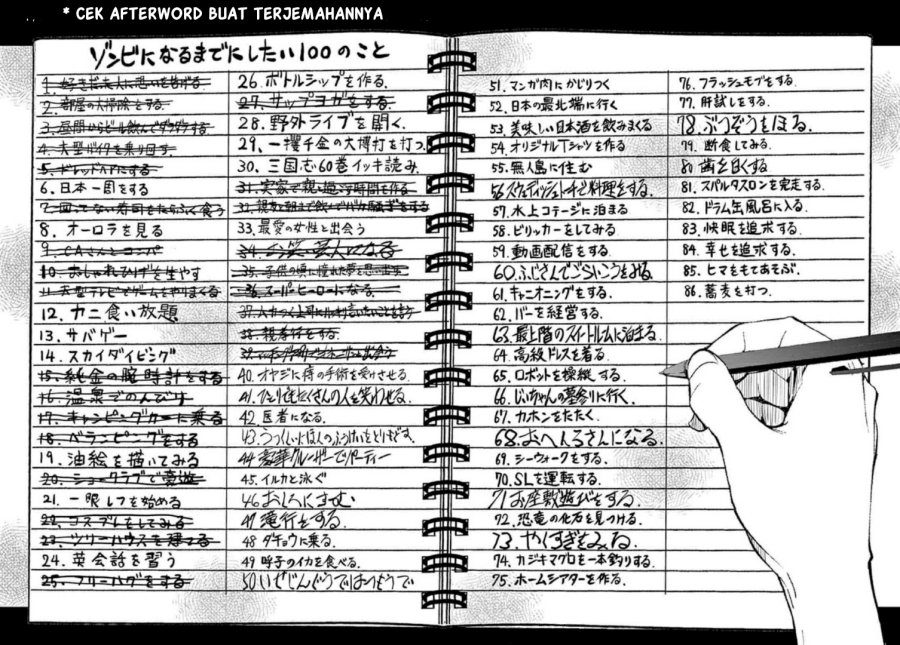 * CEK AFTERWORD BUAT TERJEMAHANNYA
ゾンビになるまでにしたい100のこと
1. 好きだった人に思いを告げる
2. 部屋の大掃除をする.
3. 昼間からビール飲んでダラダラする
4. 大型バイクを乗り回す
5. ドレッドヘアにする
6. 日本一周をする
7. 回ってない寿司をたらふく食う
8. オーロラを見る
9. CAさんとコンパ
10. おしゃれひげを生やす
11. 大型テレビでゲームをやりまくる
12. カニ食い放題
13. サバゲー
14. スカイダイビング
15. 純金の腕時計をする
16. 温泉でのんびり
17. キャンピングカーに乗る
18. ベランピングをする
19. 油絵を描いてみる
20. ショークラブで豪遊
21. 一眼レフを始める
22. コスプレをしてみる
23. ツリーハウスを建てる
24. 英会話を習う
25. フリーハグをする
26. ボトルシップを作る.
27. サップヨガをする.
28. 野外ライブを開く.
29. 一攫千金の大博打を打つ.
30. 三国志60巻イッキ読み
31. 実家で親と過ごす時間を作る.
32. 親友と朝まで飲んでバカ騒ぎをする
33. 最愛の女性と出会う
34. お笑い芸人になる
35. 子供の頃に憧れた夢を思い出す
36. スーパーヒーローになる.
37. ムカつく上司に言いたいことを言う
38. 親孝行をする.
40. オヤジに痔の手術を受けさせる.
41. ひとりでもたくさんの人を笑わせる.
42. 医者になる.
43. うつくしいにほんのふうけいをとりもどす.
44. 豪華クルーザーでパーティー
45. イルカと泳ぐ
46. おしろにすむ
47. 滝行をする.
48. ダチョウに乗る.
49. 呼子のイカを食べる.
50. いせじんぐうではつもうで
51. マンガ肉にかじりつく
52. 日本の最北端に行く
53. 美味しい日本酒を飲みまくる
54. オリジナルTシャツを作る
55. 無人島に住む
56. スウェディッシュトーチで料理をする.
57. 水上コテージに泊まる
58. ビリッカーをしてみる.
59. 動画配信をする.
60. ふじさんでごらいこうをみる
61. キャニオニングをする.
62. バーを経営する.
63. 最上階のスイートルームに泊まる.
64. 高級ドレスを着る.
65. ロボットを操縦する.
66. じいちゃんの墓参りに行く.
67. カホンをたたく.
68. おへんろさんになる.
69. シーウォークをする.
70. SLを運転する.
71. お座敷遊びをする.
72. 恐竜の化石を見つける.
73. やくすぎをみる.
74. カジキマグロを一本釣りする.
75. ホームシアターを作る.
76. フラッシュモブをする.
77. 肝試しをする.
78. ぶつぞうをほる.
79. 断食してみる.
80. 歯を白くする
81. スパルタスロンを完走する.
82. ドラム缶風呂に入る.
83. 快眠を追求する.
84. 幸せを追求する.
85. ヒマをもてあそぶ.
86. 蕎麦を打つ.